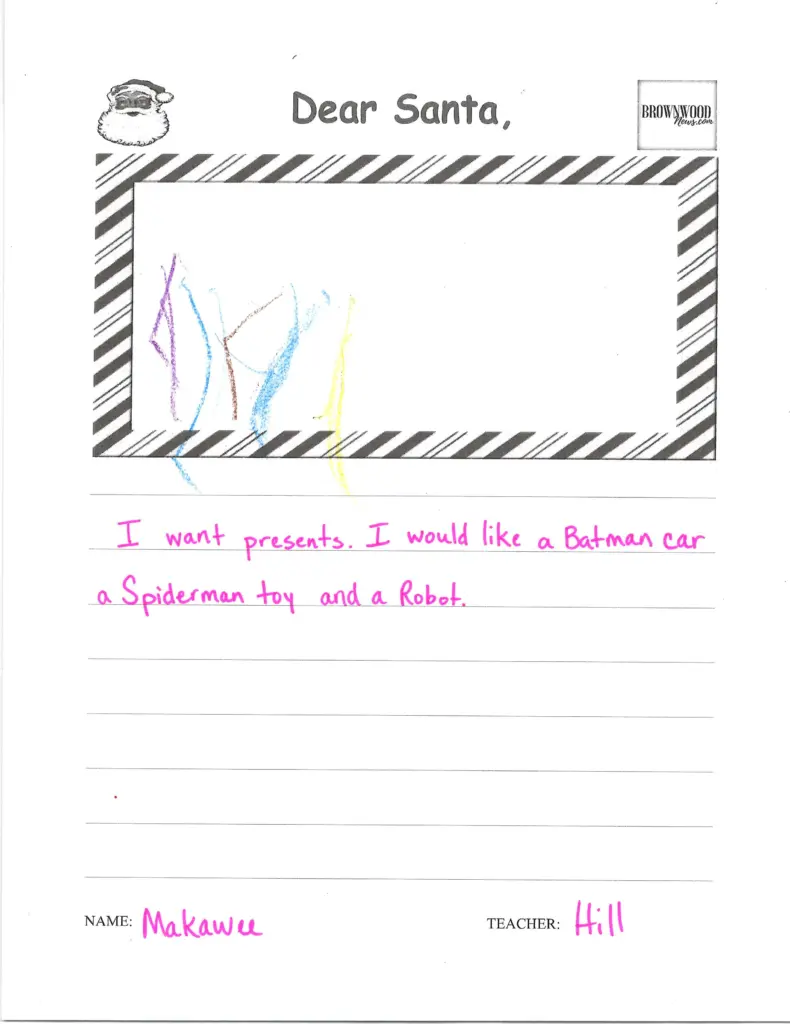 Dear Santa,
BROWNWOOD
News.com
I want presents. I would like a Batman car
a Spiderman toy and a Robot.
NAME: Makawee
TEACHER: Hill